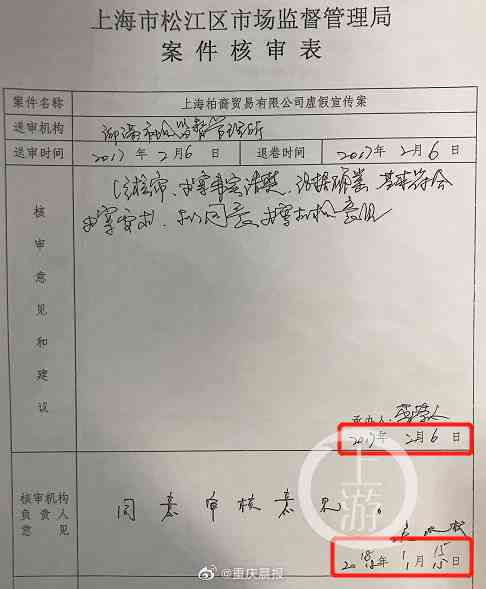 上海市松江区市场监督管理局
案件核审表
案件名称 上海柏裔贸易有限公司虚假宣传案
送审机构 市场监督管理所
送审时间 2017年2月6日 退卷时间 2017年2月6日
核审意见和建议
经核审、办案事实清楚、证据确凿、基本符合
办案 同意办案机构意见
承办人:
2017年2月6日
核审机构负责人意见
同意审核意见。
2018年1月15日
上游
@重庆晨报